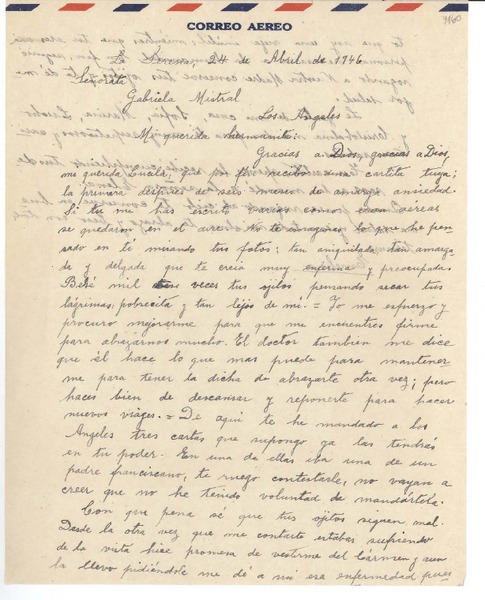 CORREO AEREO
La Serena, 24 de Abril de 1946
Señorita
Gabriela Mistral
Los Angeles
Mi querida hermanita:
Gracias a Dios, gracias a Dios,
me querida Lucila, que por fin recibo una cartita tuya;
la primera despues de seis meses de amarga ansiedad.
Si tu me has escrito varias como eran aéreas
se quedaron en el aire. No te imaginas lo que he pen-
sado en ti mirando tus fotos; tan aniquilada tan amarga-
da y delgada que te creia muy enferma y preocupada
Bebé mil veces tus ojitos pensando secar tus
lagrimas, pobrecita y tan lejos de mi. = Yo me esfuerzo y
procuro mejorarme para que me encuentres firme
para abrazarnos mucho. El doctor tambien me dice
que él hace lo que mas puede para mantener-
me para tener la dicha de abrazarte otra vez; pero
haces bien de descansar y reponerte para hacer
nuevos viages. = De aqui te he mandado a los
Angeles tres cartas que supongo ya las tendrás
en tu poder. En una de ellas iba una de un
padre franciscano, te ruego contestarle, no vayan a
creer que no he tenido voluntad de mandártela.
Con que pena sé que tus ojitos siguen mal.
Desde la otra vez que me contaste estabas sufriendo
de la vista hise promesa de vestirme del Cármen y aun
la llevo pidiéndole me dé a mi esa enfermedad pues